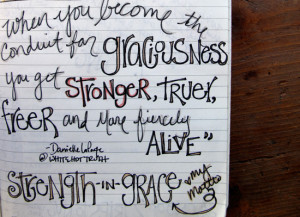 when you become the
conduit for graciousness
you get STRONGER, TRUER,
freer and More fiercely
ALIVE"
-Danielle LaPorte
@WHITEHOTTRUTH
STRENGTH-IN-GRACE
my
motto